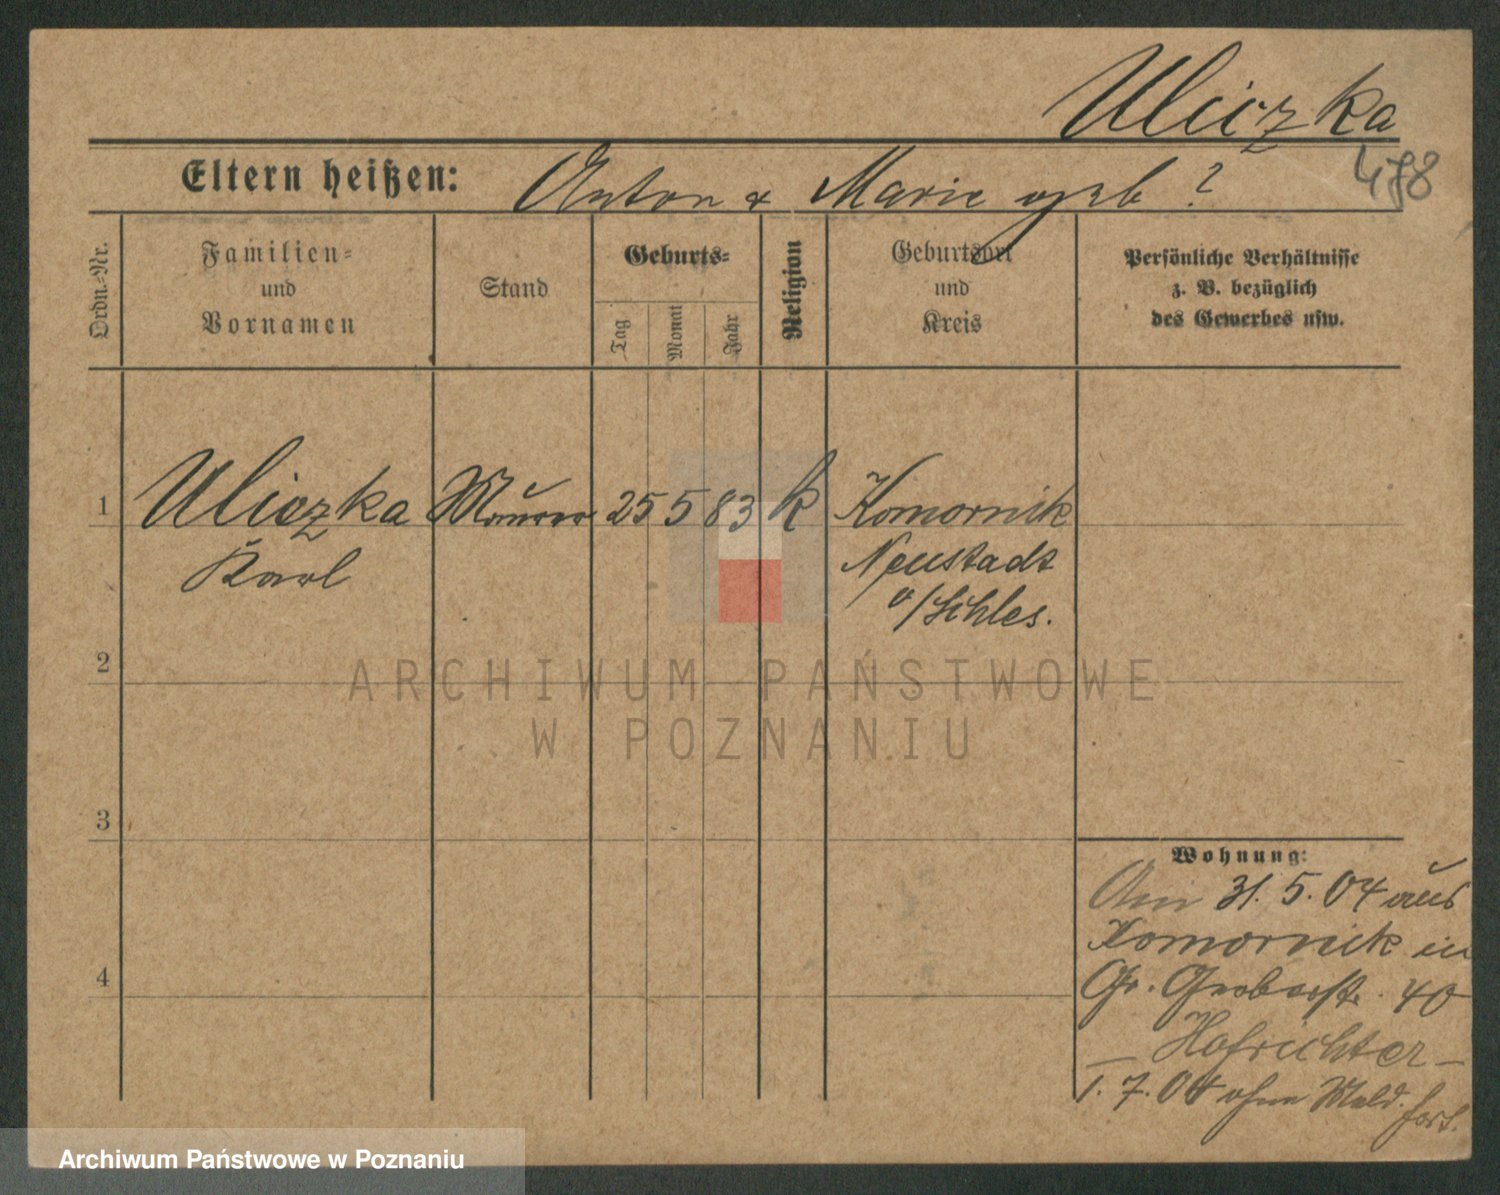 Uliczka
478
Eltern heißen: Anton & Marie geb ?
Ordn.-Nr.
Familien-
und
Vornamen
Stand
Geburts-
Tag
Monat
Jahr
Religion
Geburtsort
und
Kreis
Persönliche Verhältnisse
z. B. bezüglich
des Gewerbes usw.
1 Uliczka Maurer 25 5 83 k Komornik
Karl
Neustadt
o/Schles.
2
3
4
ARCHIWUM PAŃSTWOWE
W POZNANIU
Wohnung:
Am 31. 5. 04 aus
Komornik in
Gr. Gerberstr. 40
Hofrichter –
1. 7. 04 ohne Meld. fort.
Archiwum Państwowe w Poznaniu